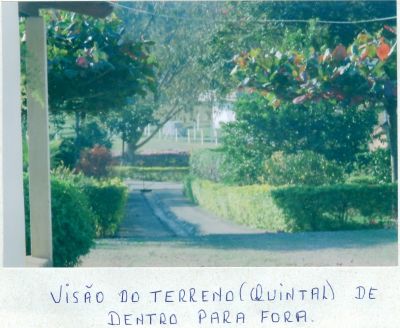 VISÃO DO TERRENO (QUINTAL) DE
DENTRO PARA FORA.